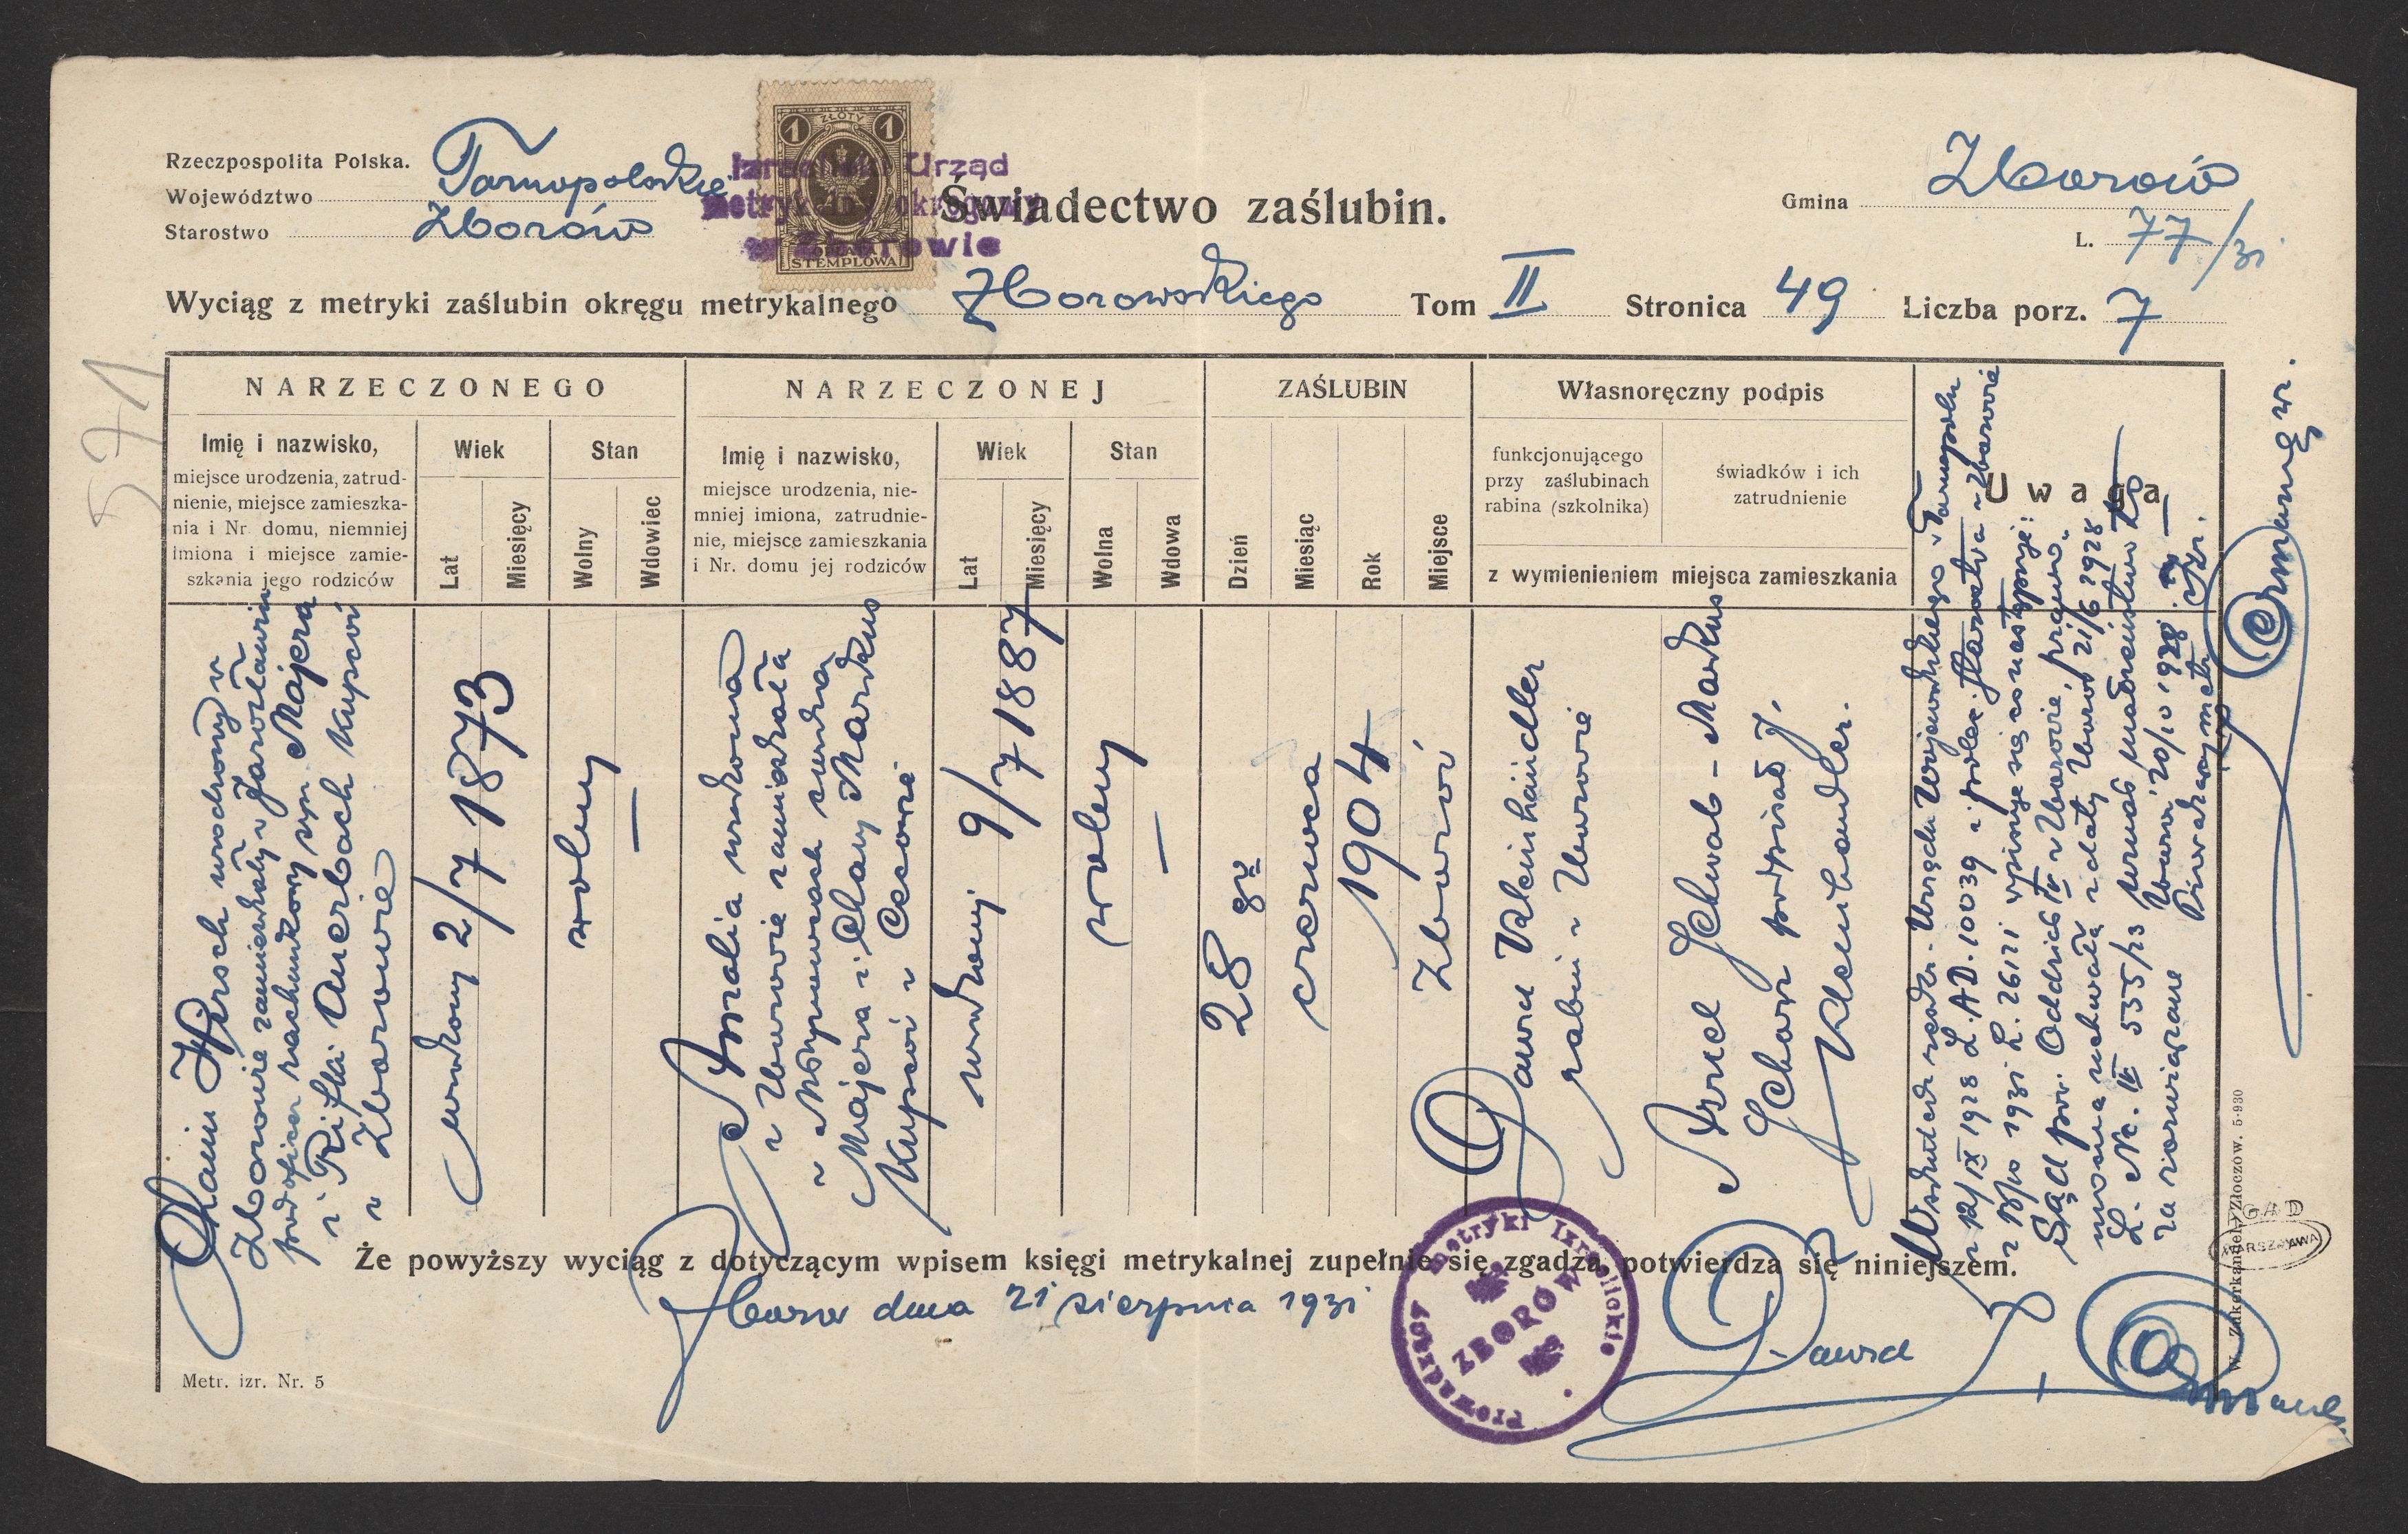 571
Rzeczpospolita Polska.
Województwo Tarnopolskie
Starostwo Zborów
1 ZŁOTY 1
OPŁATA
STEMPLOWA
Izraelicki Urząd
metrykalny okręgowy
w Zborowie
Świadectwo zaślubin.
Gmina Zborów
L. 77/31
Wyciąg z metryki zaślubin okręgu metrykalnego Zborowskiego Tom II Stronica 49 Liczba porz. 7
NARZECZONEGO
Imię i nazwisko,
miejsce urodzenia, zatrud-
nienie, miejsce zamieszka-
nia i Nr. domu, niemniej
imiona i miejsce zamie-
szkania jego rodziców
Wiek
Lat
Miesięcy
Stan
Wolny
Wdowiec
NARZECZONEJ
Imię i nazwisko,
miejsce urodzenia, nie-
mniej imiona, zatrudnie-
nie, miejsce zamieszkania
i Nr. domu jej rodziców
Wiek
Lat
Miesięcy
Stan
Wolna
Wdowa
ZAŚLUBIN
Dzień
Miesiąc
Rok
Miejsce
Własnoręczny podpis
funkcjonującego
przy zaślubinach
rabina (szkolnika)
świadków i ich
zatrudnienie
z wymienieniem miejsca zamieszkania
Uwaga
Chaim Hersch urodzony w
Zborowie zamieszkały w Jarosławiu
podoficer rachunkowy syn Majera
i Rifki Auerbach kupców
w Zborowie
urodzony 2/7 1873
wolny
—
Amalia urodzona
w Zborowie zamieszkała
w córka
Majera i Chany Markus
kupców w
urodzony 9/7 1887
wolny
—
28 go
czerwca
1904
Zborów
Dawid Kleinhändler
rabin w Zborowie
Izrael Schwab - Markus
Schorr podpisał J.
Kleinhandler.
Wskutek Urzędu Wojewódzkiego w Tarnopolu
z 12/IX 1928 L. AD. 10039 i polec. Starostwa w Zborowie
z 1931 L. 26121 wpisuje się co następuje:
Sąd pow. Oddział IV w Zborowie prawo-
mocną uchwałą z daty Zborów 21/6 1928
L. Nc. IV 555/23 uznał małżeństwo to
za rozwiązane Zborów 20/10 1928
Prowadzący metr. izr.
Ormang wr.
Że powyższy wyciąg z dotyczącym wpisem księgi metrykalnej zupełnie się zgadza, potwierdza się niniejszem.
Zborów dnia 21 sierpnia 1931
Prowadzący Metryki Izraelickie
ZBORÓW
Dawid
Metr. izr. Nr. 5
W. Zukerkandel, Złoczów. 5-930
AGAD
WARSZAWA